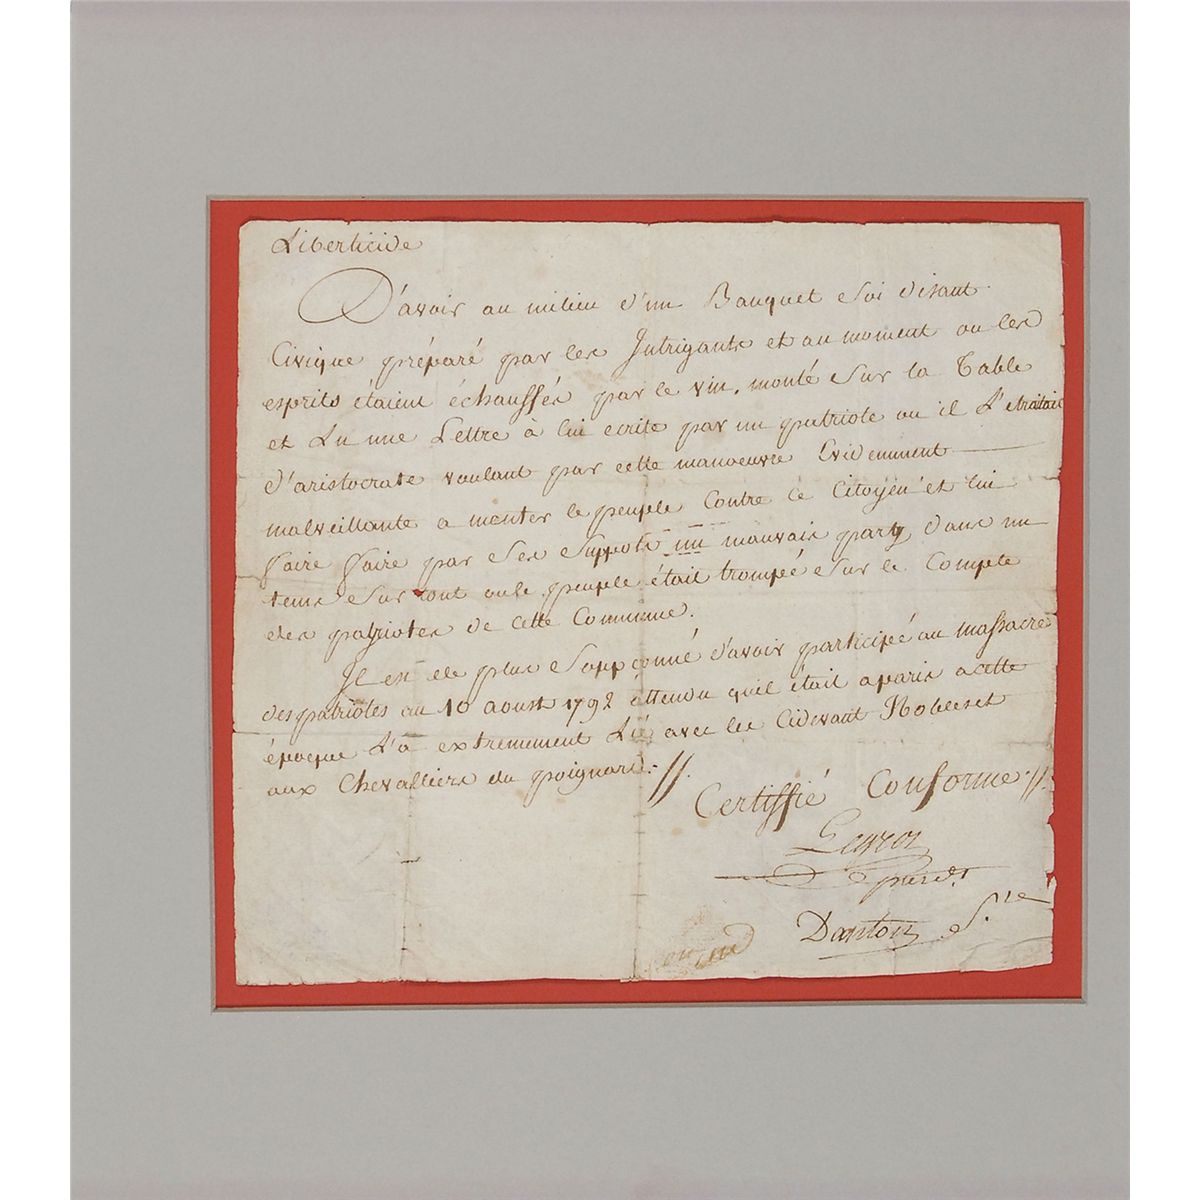 Liberticide
D'avoir au milieu d'un Banquet Soi disant
Civique préparé par les Intrigants et au moment ou les
esprits étaient échauffés par le vin, monté Sur la Table
et Lu une Lettre à lui ecrite par un patriote ou il L'etraitait
d'aristocrate voulant par cette manoeuvre Evidemment
malveillante a monter le peuple Contre ce Citoyen et lui
faire faire par Ses Suppots un mauvais party dans un
tems Sur tout ou le peuple était trompée Sur le Compte
des patriotes de cette Commune.
Il est de plus Soupçonné d'avoir participé au massacre
des patriotes au 10 aoust 1792 attendu qu'il était a paris a cette
époque L'a extremement Lié avec les Cidevant Nobles et
aux Chevalliers du poignard.//
Certiffié Conforme //.
Legros
presdt
Danton S.re